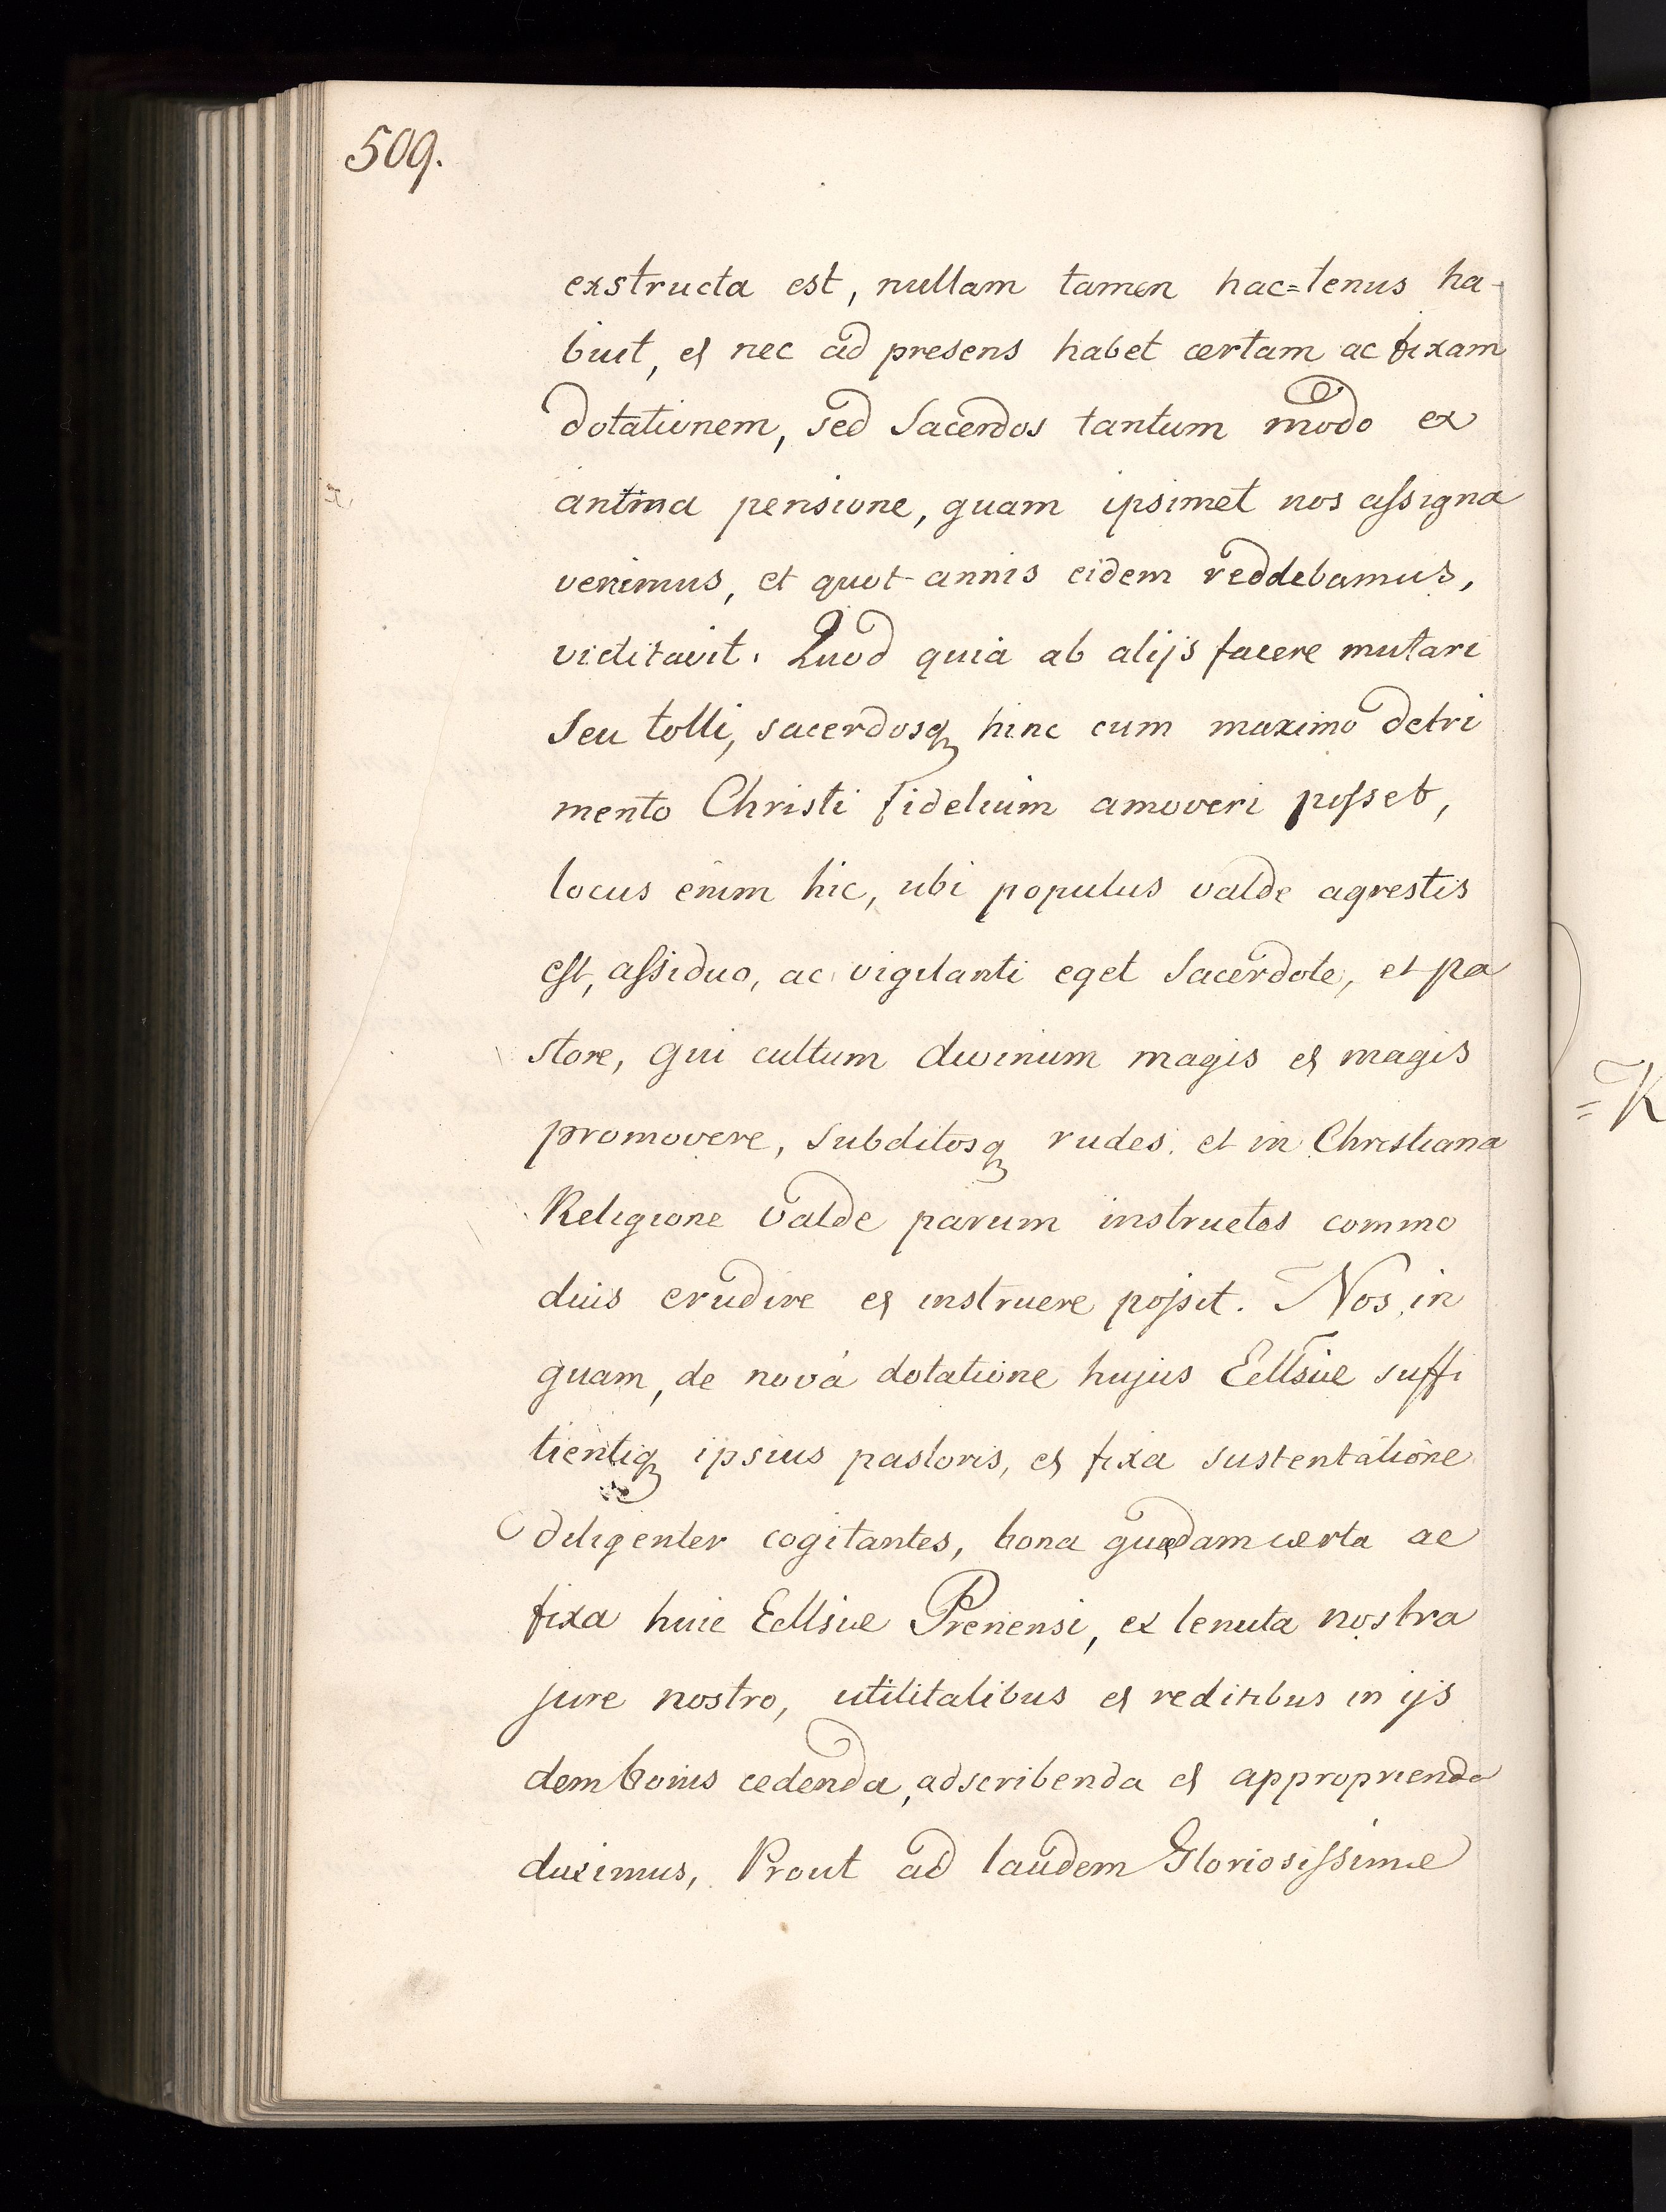 509.
exstructa est, nullam tamen hac=tenus ha-
buit, et nec ad presens habet certam ac fixam
dotationem, sed Sacerdos tantum modo ex
antina pensione, quam ipsimet nos assigna
venimus, et quot-annis eidem reddebamus,
victitavit. Quod quia ab alijs facere mutari
Seu tolli, sacerdosq hinc cum maximo detri
mento Christi fidelium amoveri posset,
locus enim hic, ubi populus valde agrestis
est, assiduo, ac vigilanti eget Sacerdote, et pa
store, qui cultum divinum magis et magis
promovere, Subditosq rudes, et in Christiana
Religione valde parum instructos commo
dius erudire et instruere possit. Nos in
quam, de nová dotatione hujus Ecllsiæ suffi
tientiq ipsius pastoris, et fixa sustentatione
diligenter cogitantes, bona quædam certa ac
fixa huic Ecllsiæ Prenensi, ex tenuta nostra
jure nostro, utilitatibus et reditibus in ijs
dem bonis cedenda, adscribenda et approprienda
duximus, Prout ad laudem Gloriosissimæ
=K